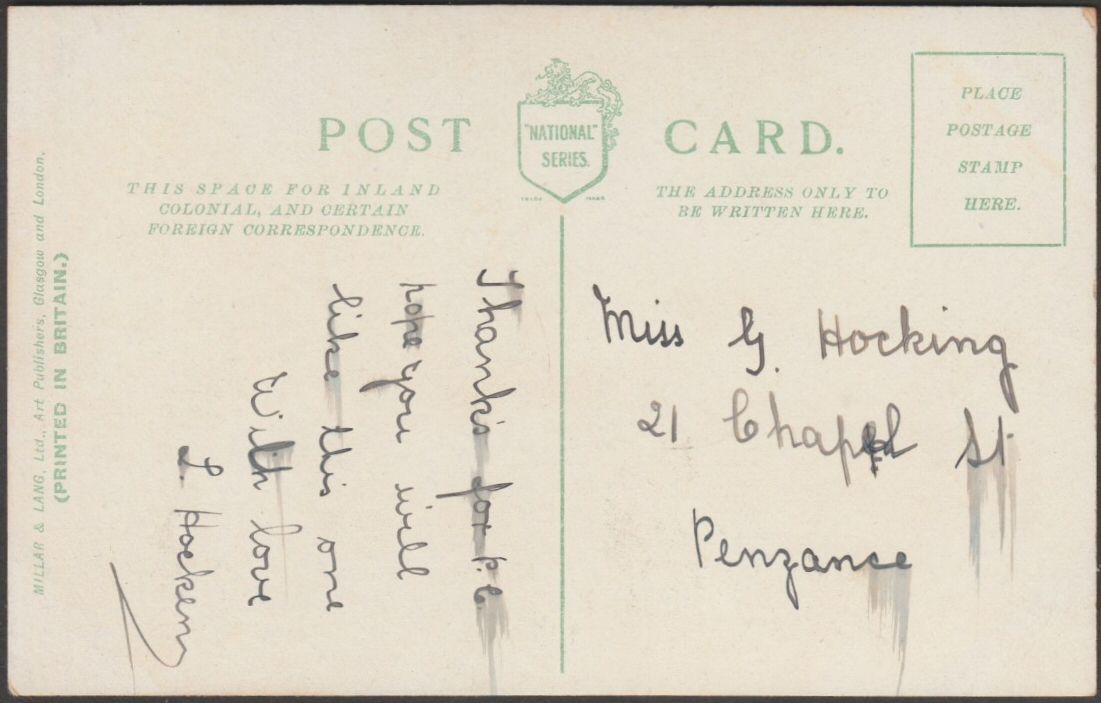 POST CARD.
"NATIONAL"
SERIES.
TRADE MARK
THIS SPACE FOR INLAND
COLONIAL, AND CERTAIN
FOREIGN CORRESPONDENCE.
THE ADDRESS ONLY TO
BE WRITTEN HERE.
PLACE
POSTAGE
STAMP
HERE.
MILLAR & LANG, Ltd., Art Publishers, Glasgow and London.
(PRINTED IN BRITAIN.)
Thanks for p.c.
hope you will
like this one
With love
L. Hocken
Miss G. Hocking
21 Chapel St
Penzance